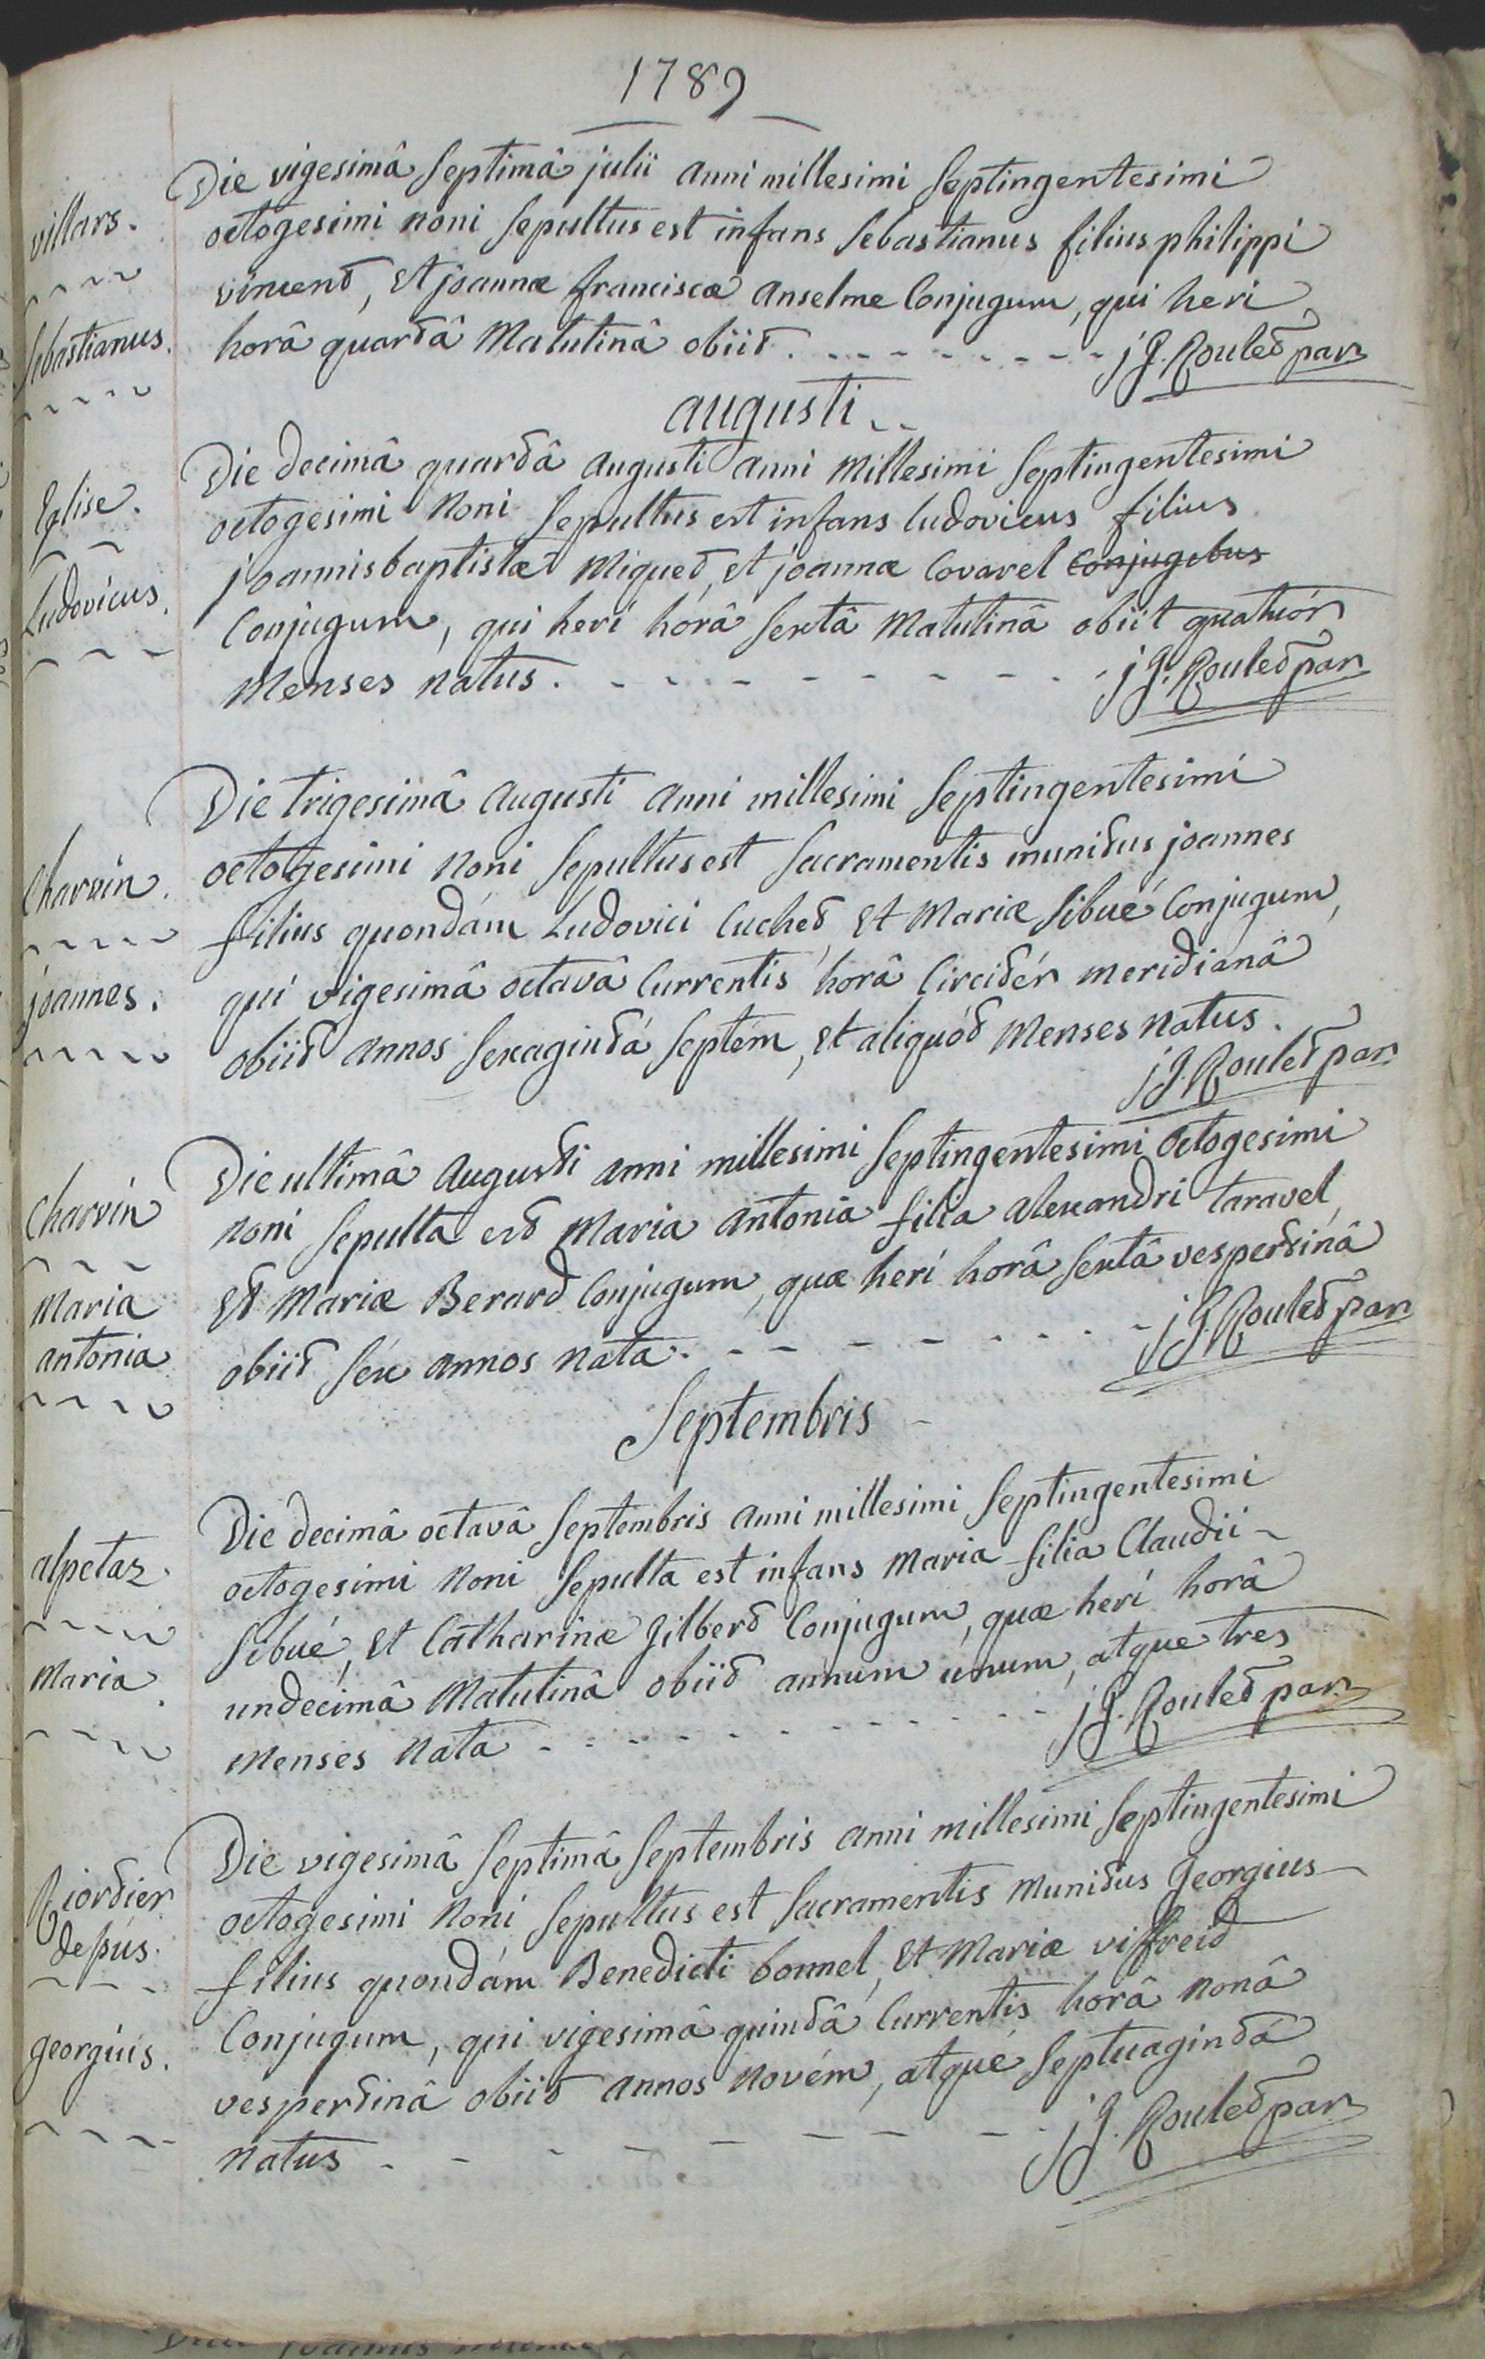 1789
villars.
Sebastianus.
Die vigesimâ Septimâ julii anni millesimi Septingentesimi
octogesimi noni Sepultus est infans Sebastianus filius philippi
vincent, et joannæ franciscæ anselme Conjugum, qui heri
horâ quartâ Matutinâ obiit. j J. Roulet par
augusti
Eglise.
Ludovicus.
Die decimâ quartâ augusti anni Millesimi Septingentesimi
octogesimi Noni Sepultus est infans ludovicus filius
joannisbaptistæ Miquet, et joannæ Covarel Conjugibus
Conjugum, qui heri horâ Sextâ Matutinâ obiit quatuór
Menses natus. j J. Roulet par
Charvin.
joannes.
Die trigesimâ augusti anni millesimi Septingentesimi
octogesimi Noni Sepultus est Sacramentis munitus joannes
filius quondám Ludovici Cuchet, Et Mariæ Sibué Conjugum,
qui vigesimâ octavâ Currentis horâ Circitér meridianâ
obiit annos Sexagintá Septém, et aliquót Menses natus.
j J. Roulet par
Charvin
Maria
antonia
Die ultimâ Augusti anni millesimi Septingentesimi Octogesimi
Noni Sepulta est Maria antonia filia alexandri taravel,
Et Mariæ Berard Conjugum, quæ heri horâ Sextâ vespertinâ
obiit Sex annos nata. j J. Roulet par
Septembris
alpetaz.
Maria.
Die decimâ octavâ Septembris anni millesimi Septingentesimi
octogesimi Noni Sepulta est infans Maria filia Claudii
Sibué, Et Catharinæ Gilbert Conjugum, quæ heri horâ
undecimâ Matutinâ obiit annum unum, atque tres
Menses Nata j J. Roulet par
Riortier
desús.
georgius.
Die vigesimâ Septimâ Septembris anni millesimi Septingentesimi
octogesimi Noni Sepultus est Sacramentis Munitus Georgius
filius quondám Benedicti bonnel, Et Mariæ viffreid
Conjugum, qui vigesimâ quintâ Currentis horâ Nonâ
vespertinâ obiit annos Novém, atqué Septuagintá
Natus j J. Roulet par